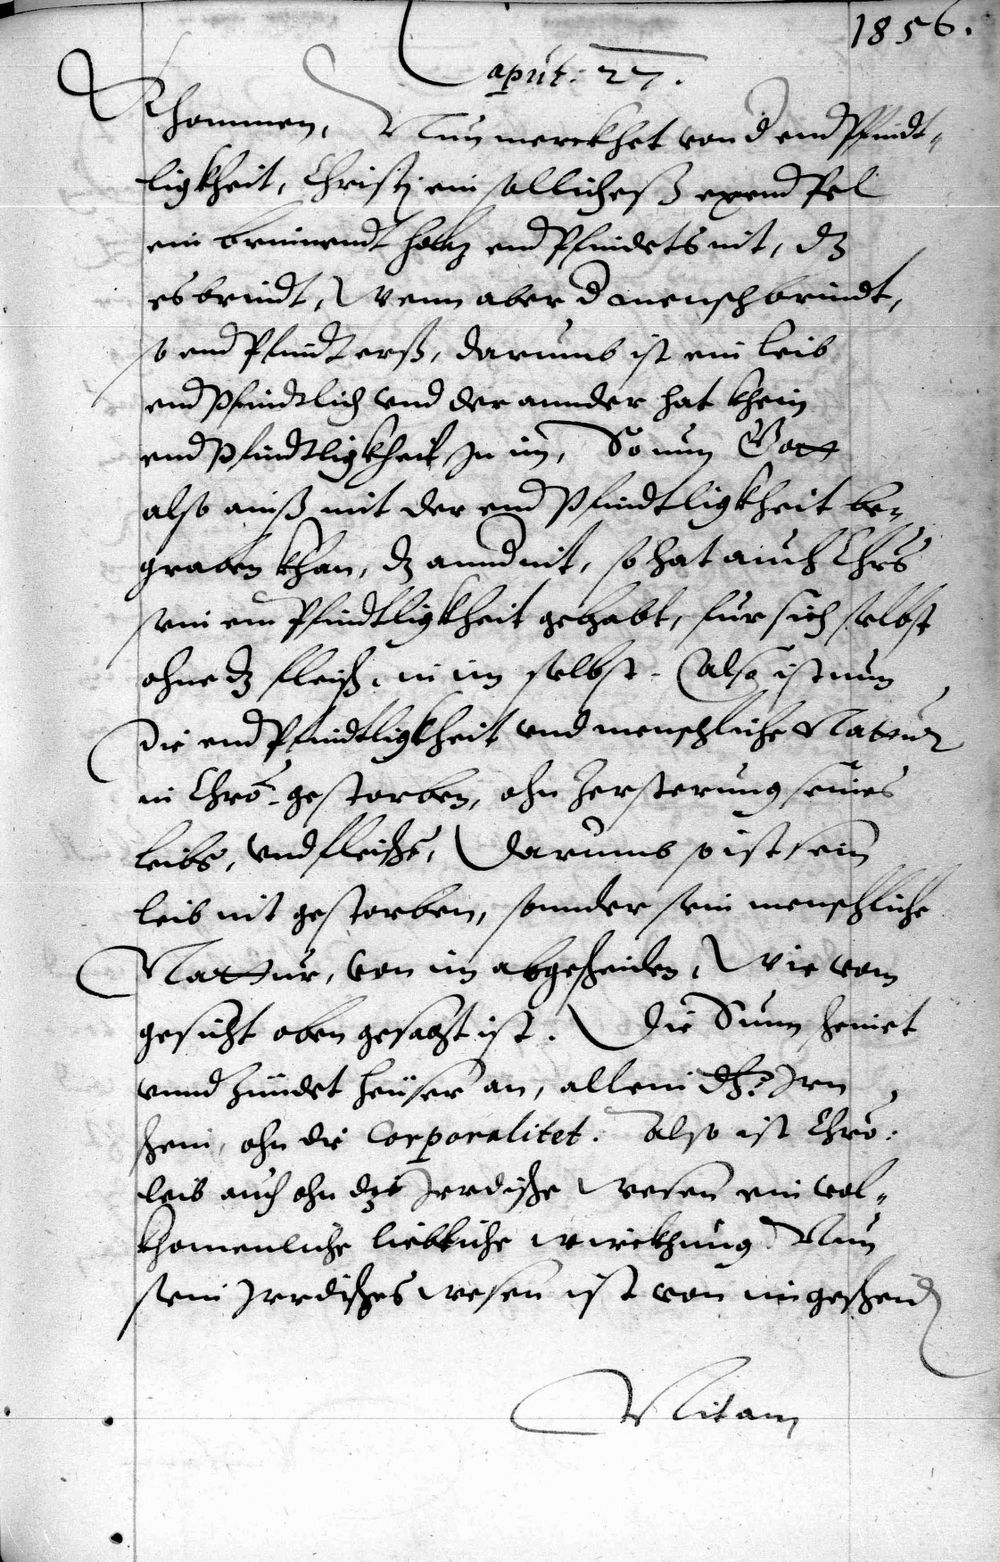 1856.
Caput: 27.
Khommen, Nun merckhet von d endpfindt-
ligkheit, Christi ein sollicheß exendpel
ein brinnendt holtz endpfindets nit, dz
es brindt, Wenn aber d mensch brindt,
so endpfindt erß, darumb ist ein leib
endpfindtlich vnd der annder hat khein
endpfindtligkheit in im, So nun Gott
also ainß mit der endpfindtligkheit be-
graben khan, dz annd nit, so hat auch Chrs
sein empfindtligkheit gehabt, fur sich selbst
ohne dz fleisch, in im selbst. Also ist nun
die endpfindtligkheit vnd menschliche Natur
in Chro gestorben, ohn zersterung seines
leibs, vnd fleischs, Darumb so ist sein
leib nit gestorben, sonnder sein menschliche
Nattur, von im abgescheiden, Wie vom
gesicht oben gesagt ist. Die Sunn scheinet
vnnd zündet heüser an, allein durch Irn
schein, ohn die Corporalitet. Also ist Chro:
leib auch ohn dz Irrdische Wesen ein vol-
khomenliche liebliche wirckhung. Nun
sein Irrdisches wesen ist von im gescheid
Nit am